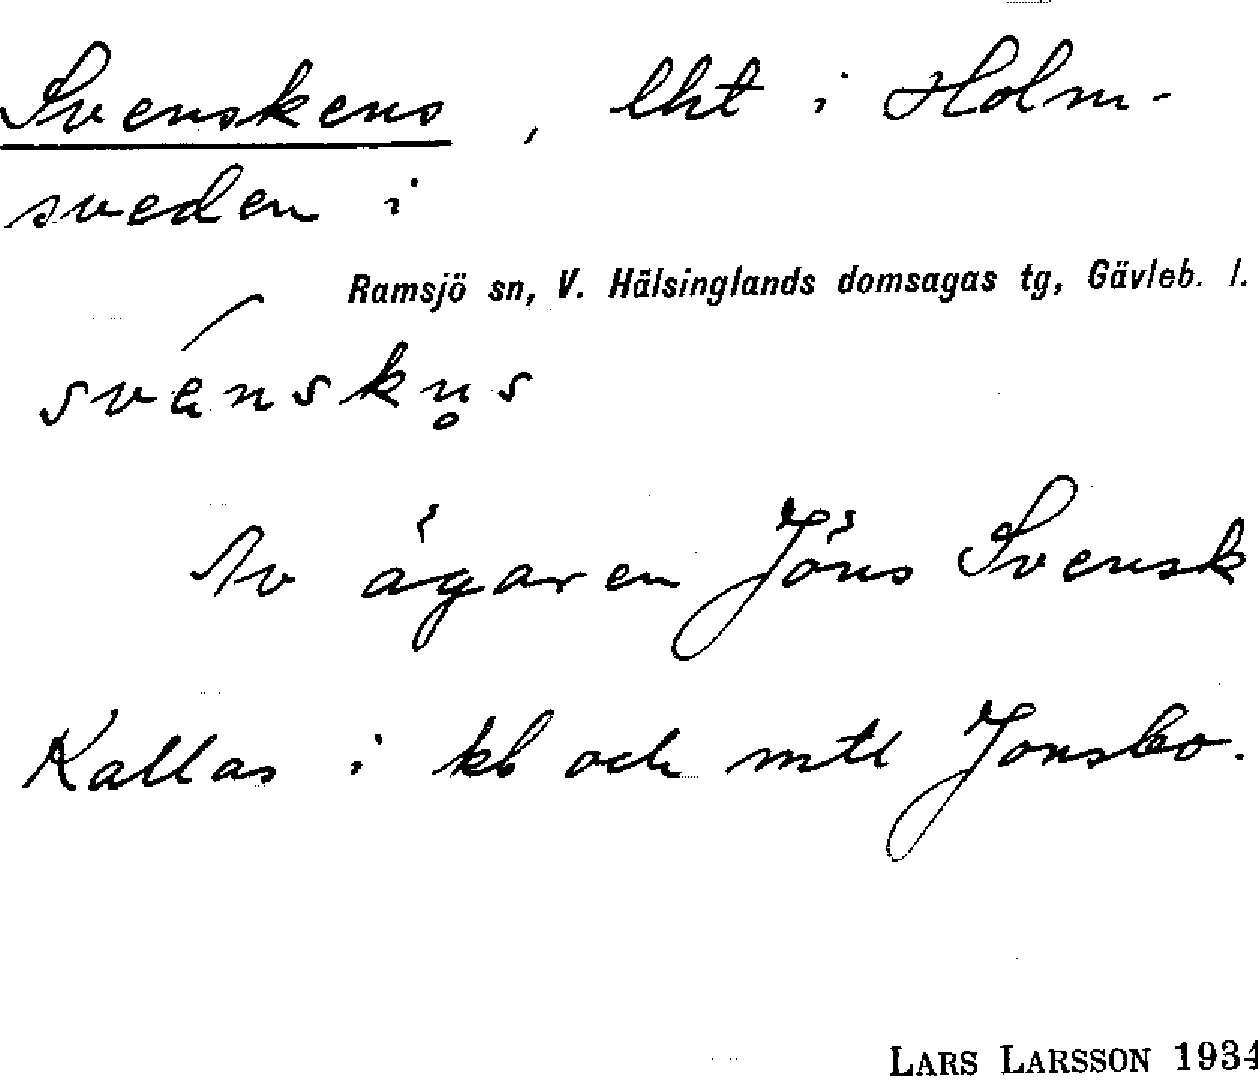 Svenskens, lht i Holm-
sveden i
Ramsjö sn, V. Hälsinglands domsagas tg, Gävleb. l.
svénskn̥s
Av ägaren Jöns Svensk
Kallas i kb och mtl Jonsbo.
LARS LARSSON 1934